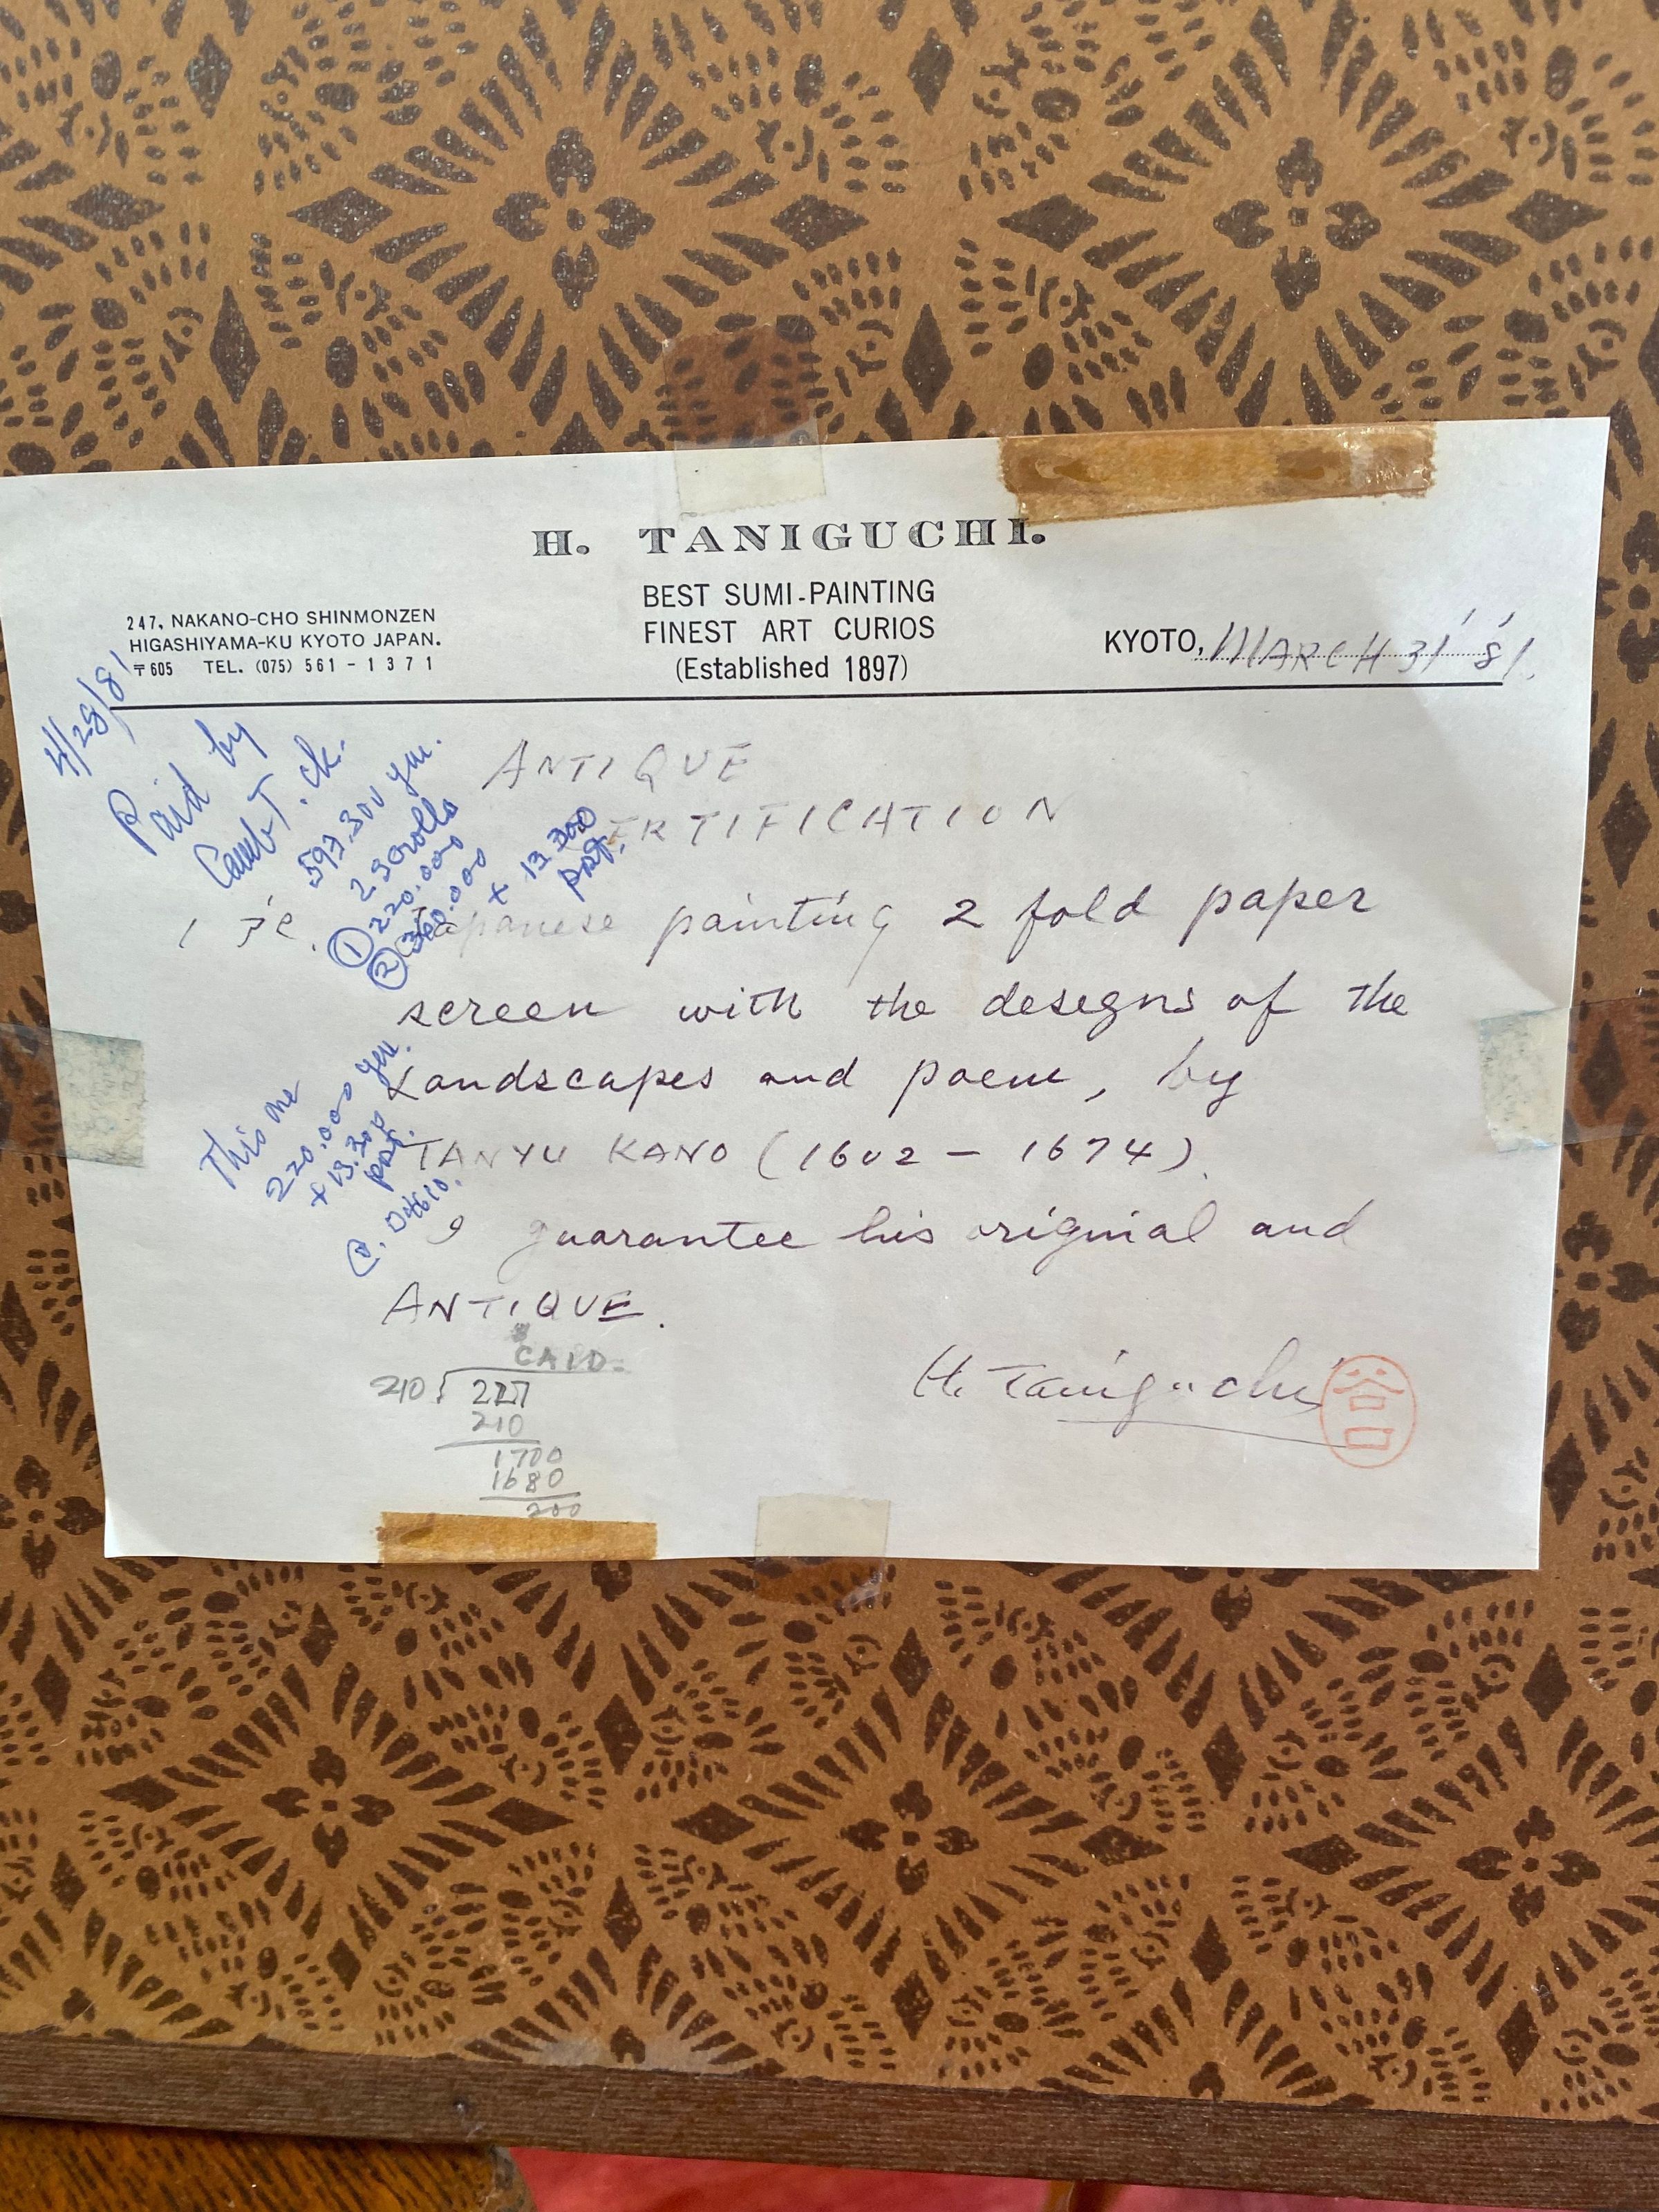 H. TANIGUCHI.
BEST SUMI-PAINTING
FINEST ART CURIOS
(Established 1897)
247, NAKANO-CHO SHINMONZEN
HIGASHIYAMA-KU KYOTO JAPAN.
〒605 TEL. (075) 561-1371
KYOTO, MARCH 31' '81.
4/28/81
Paid by
ck.
593,300 yen.
2 scrolls
① 220.000
② 360.000
+ 13.300
ANTIQUE
ERTIFICATION
1 pc. Japanese painting 2 fold paper
screen with the desegns of the
Landscapes and poem, by
TANYU KANO (1602 - 1674).
I guarantee his original and
ANTIQUE.
This one
220.000 yen.
+ 13.300
H. Taniguchi
谷口
210 227
210
1700
1680
200